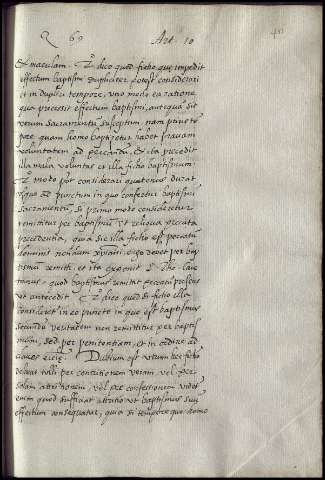 Q 69 Art. 10
et maculam. Et dico quod fictio que impedit
effectum baptismi dupliciter potest considerari
et in duplici tempore, uno modo ea ratione
qua precessit effectum baptismi, antequam sit
verum sacramentum susceptum, nam puncto
quam homo baptizetur habet pravam
voluntatem ad peccandum, et ita precedit
illa mala voluntas et illa fictio baptismum
modo potest considerari quatenus durat
usque ad punctum in quo confertur baptismi
sacramentum, si primo modo consideretur
remittitur per baptismum ut reliqua peccata
precedentia, quia sic illa fictio est peccatum
hominis non xpiani, ergo debet per bap
tismum remitti, et ita exponit S. Tho.
quod baptismus remittat peccati
ut antecedit. Et dico quod si fictio illa
consideretur in eo puncto in quo est baptismus
secundum veritatem non remittitur per baptis
mum, sed per penitentiam, et in ordine ad
claves ecclesie. Dubium est utrum hec fictio
debeat tolli per contritionem veram, vel per
solam attritionem, vel per confessionem
quod sufficiat attritio ut baptismus suum
effectum consequatur, quia si tempore quo homo